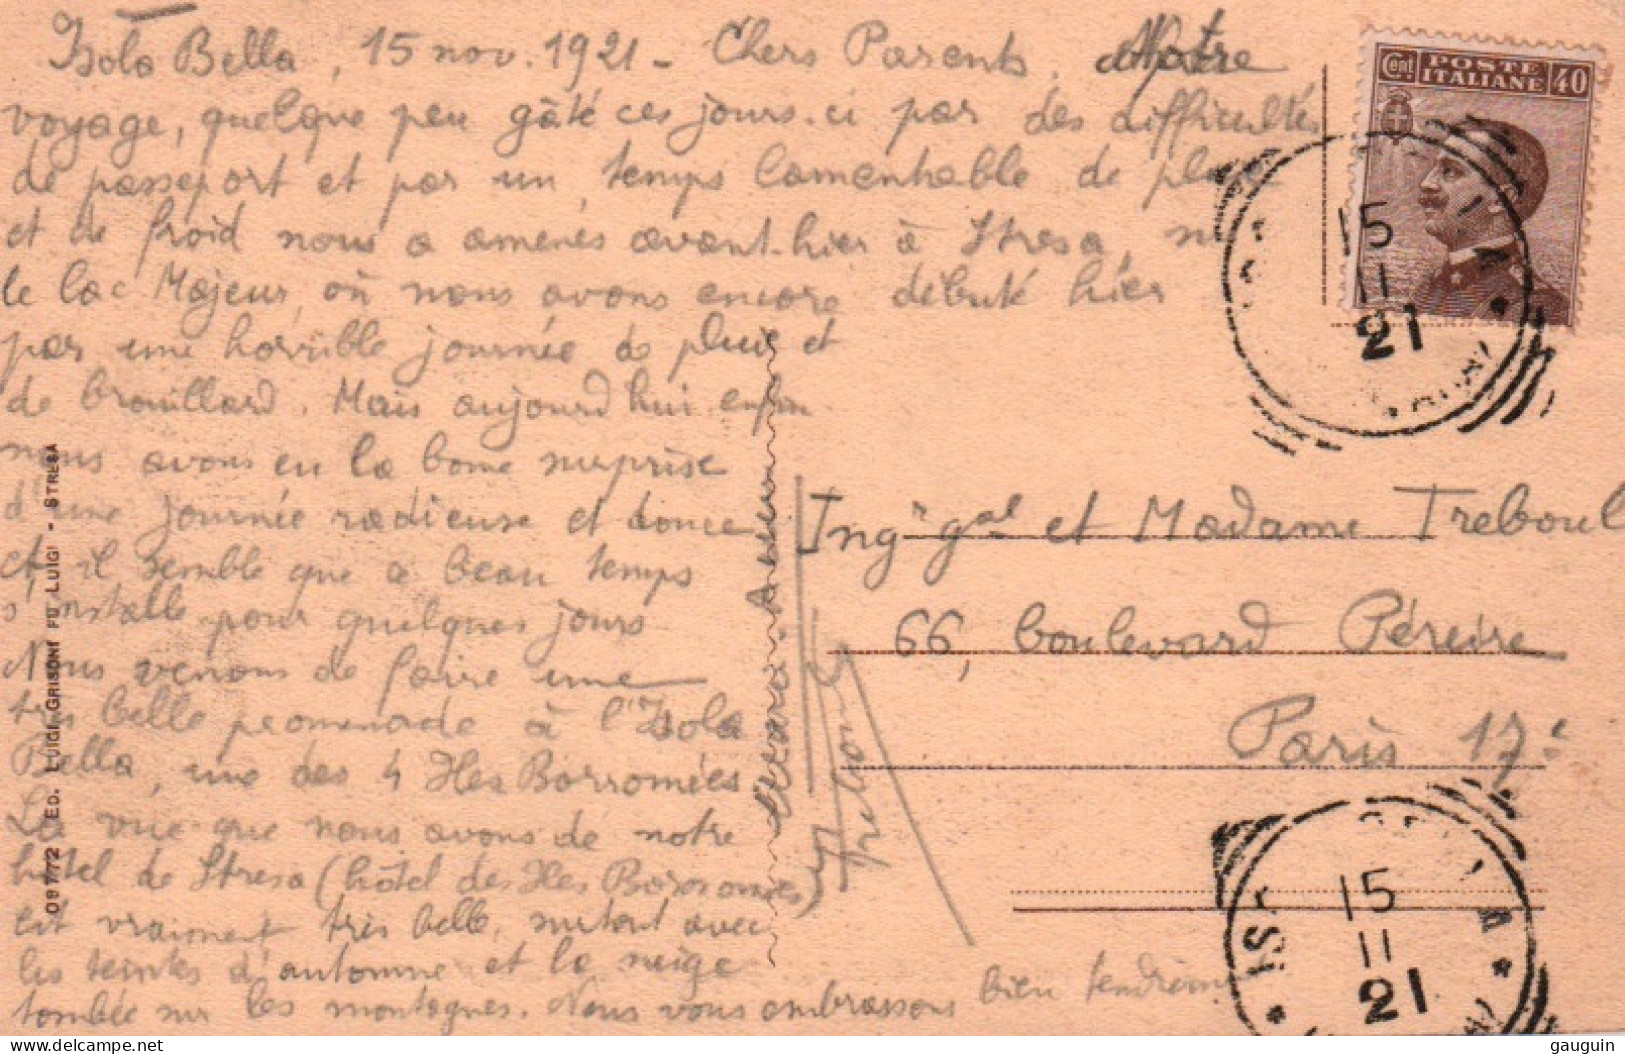 Isola Bella, 15 nov. 1921 - Chers Parents. Notre
voyage, quelque peu gâté ces jours-ci par des difficultés
de passeport et par un temps lamentable de pluie
et de froid nous a amenés avant-hier à Stresa,
le lac Majeur, où nous avons encore débuté hier
par une horrible journée de pluie et
de brouillard. Mais aujourd'hui enfin
nous avons eu la bonne surprise
d'une journée radieuse et douce
et il semble que ce beau temps
s'installe pour quelques jours
Nous venons de faire une
très belle promenade à l'Isola
Bella, une des 4 Iles Borromées
La vue que nous avons de notre
hôtel de Stresa (hôtel des Iles Borromées)
est vraiment très belle, surtout avec
les teintes d'automne et la neige
tombée sur les montagnes. Nous vous embrassons bien tendrement
Treboul
Ingr gal et Madame Treboul
66, boulevard Péreire
Paris 17e
Cent POSTE ITALIANE 40
15
11
21
IS
BELLA
15
11
21
09772 ED. LUIGI GRISONI FU LUIGI - STRESA
delcampe.net
gauguin